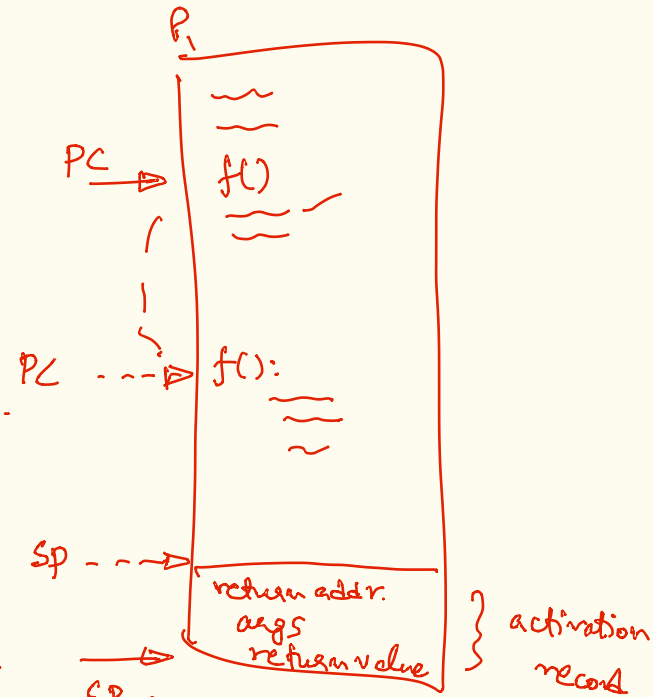 P1
PC
f()
PC
f():
SP
return addr.
args
return value
activation
record
SP